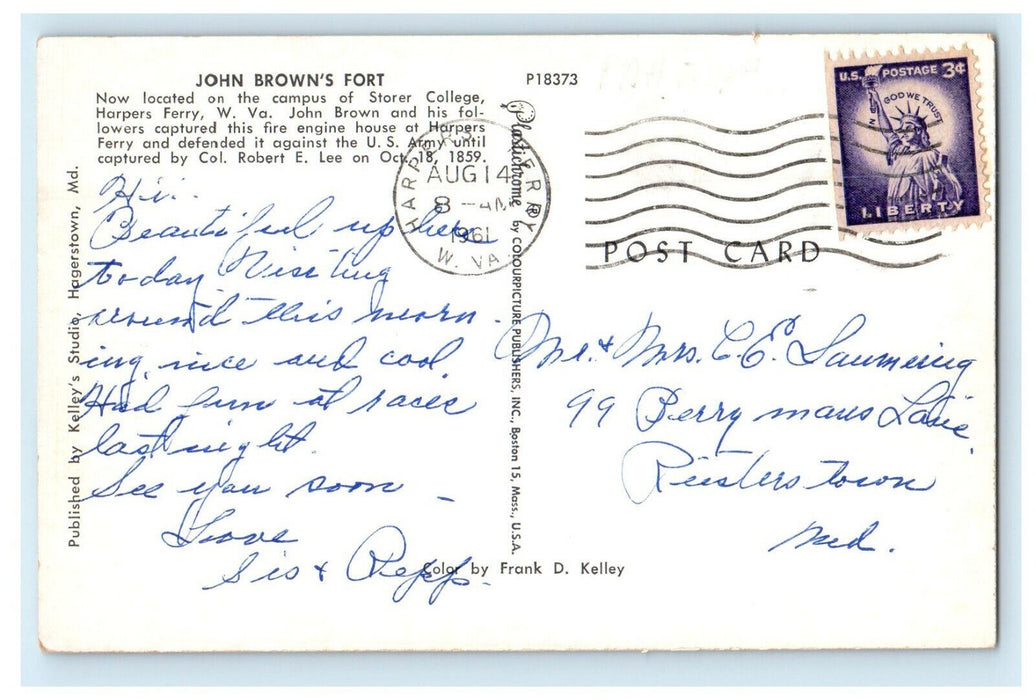 JOHN BROWN'S FORT
Now located on the campus of Storer College,
Harpers Ferry, W. Va. John Brown and his fol-
lowers captured this fire engine house at Harpers
Ferry and defended it against the U. S. Army until
captured by Col. Robert E. Lee on Oct. 18, 1859.
P18373
U.S. POSTAGE 3¢
IN GOD WE TRUST
LIBERTY
HARPERS FERRY
AUG 14
8 - AM
1961
W. VA.
POST CARD
Plastichrome ® by COLOURPICTURE PUBLISHERS, INC., Boston 15, Mass., U.S.A.
Published by Kelley's Studio, Hagerstown, Md.
Hi:
Beautiful up here
today. Visiting
around this morn-
ing, nice and cool.
Had fun at races
last night.
See you soon –
Love
Sis & Repp.
Mr. & Mrs. C. E.
99 Berrymans Lane,
Reisterstown
Md.
Color by Frank D. Kelley